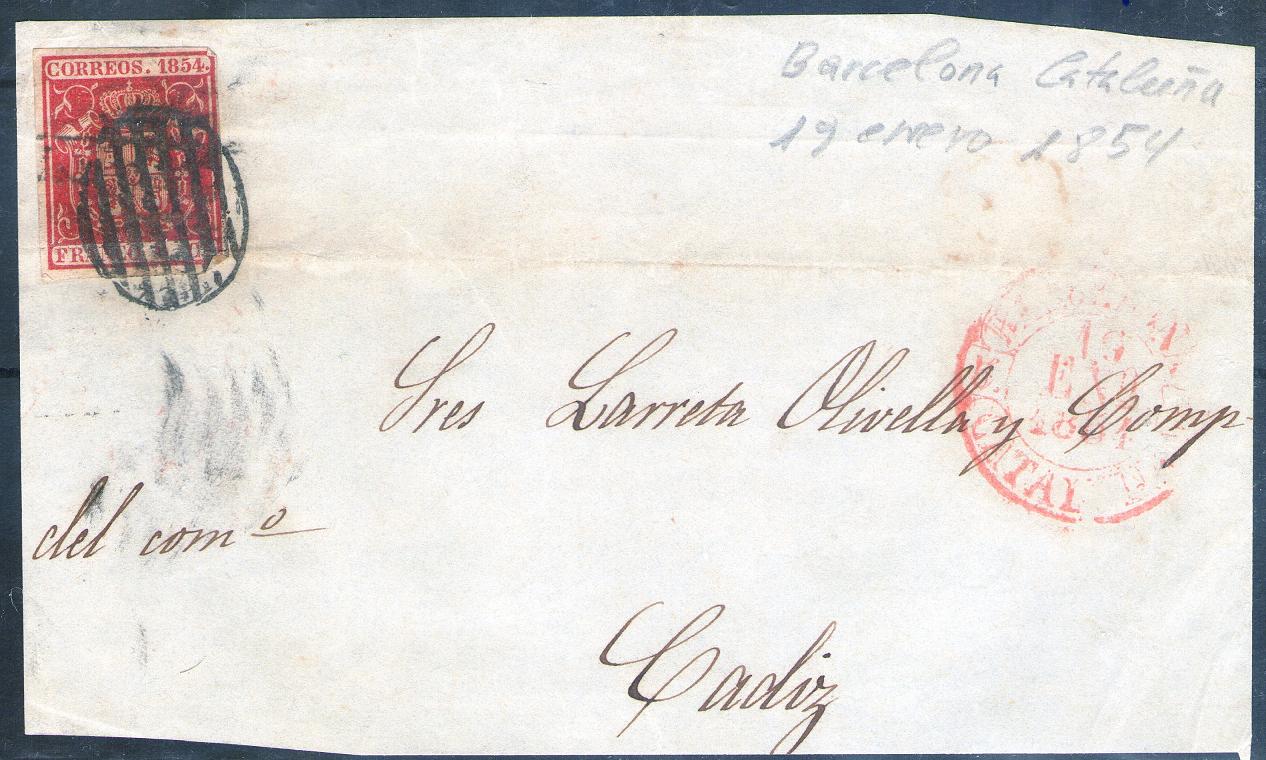 CORREOS. 1854.
Barcelona Cataluña
19 enero 1854
19
1854
Sres Larreta Olivella y Comp
del comº
Cadiz